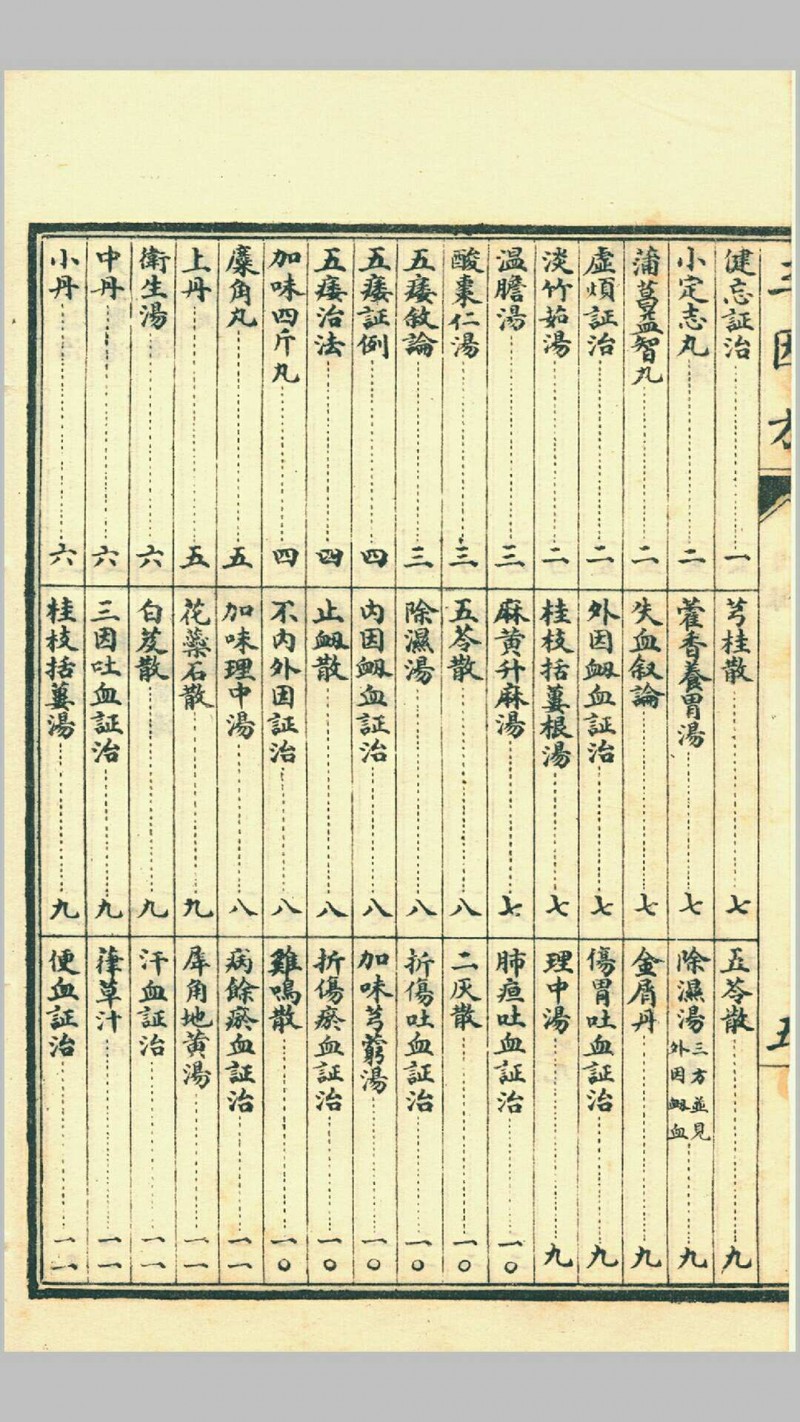 三因方
五
健忘証治 一
小定志丸 二
蒲菖益智丸 二
虛煩証治 二
淡竹茹湯 二
温膽湯 三
酸棗仁湯 三
五痿敘論 三
五痿証例 四
五痿治法 四
加味四斤丸 四
麋角丸 五
上丹 五
衛生湯 六
中丹 六
小丹 六
芎桂散 七
藿香養胃湯 七
失血叙論 七
外因衂血証治 七
桂枝括蔞根湯 七
麻黄升麻湯 七
五苓散 八
除濕湯 八
內因衂血証治 八
止衂散 八
不內外因証治 八
加味理中湯 八
花蘂石散 九
白芨散 九
三因吐血証治 九
桂枝括蔞湯 九
五苓散 九
除濕湯 三方並見外因衂血 九
金屑丹 九
傷胃吐血証治 九
理中湯 九
肺疽吐血証治 一〇
二灰散 一〇
折傷吐血証治 一〇
加味芎藭湯 一〇
折傷瘀血証治 一〇
雞鳴散 一〇
病餘瘀血証治 一一
犀角地黄湯 一一
汗血証治 一一
葎草汁 一一
便血証治 一一